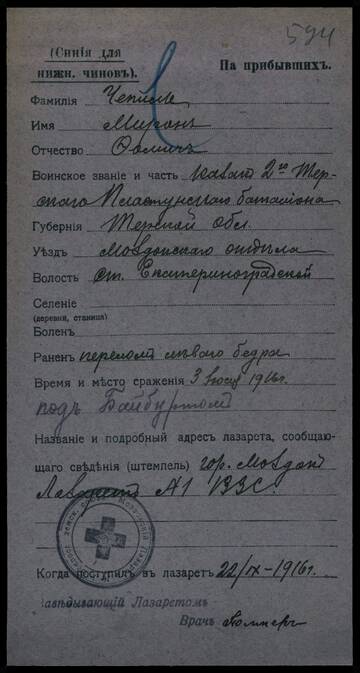 594
(Синія для
нижн. чиновъ).
На прибывшихъ.
Фамилія Чепиль
Имя Миронъ
Отчество Фомичъ
Воинское званіе и часть казакъ 2го Тер-
скаго Пластунскаго баталіона
Губернія Терской Обл.
Уѣздъ Моздокскаго отдѣла
Волость ст. Екатериноградской
Селеніе
(деревня, станица)
Боленъ
Раненъ переломъ лѣваго бедра
Время и мѣсто сраженія 3 1916г.
подъ Байбуртомъ
Названіе и подробный адресъ лазарета, сообщаю-
щаго свѣдѣнія (штемпель) гор. Моздокъ
Лазаретъ №1 ВЗС.
Когда поступилъ въ лазаретъ 22/IX-1916г.
Завѣдывающій Лазаретомъ
Врачъ